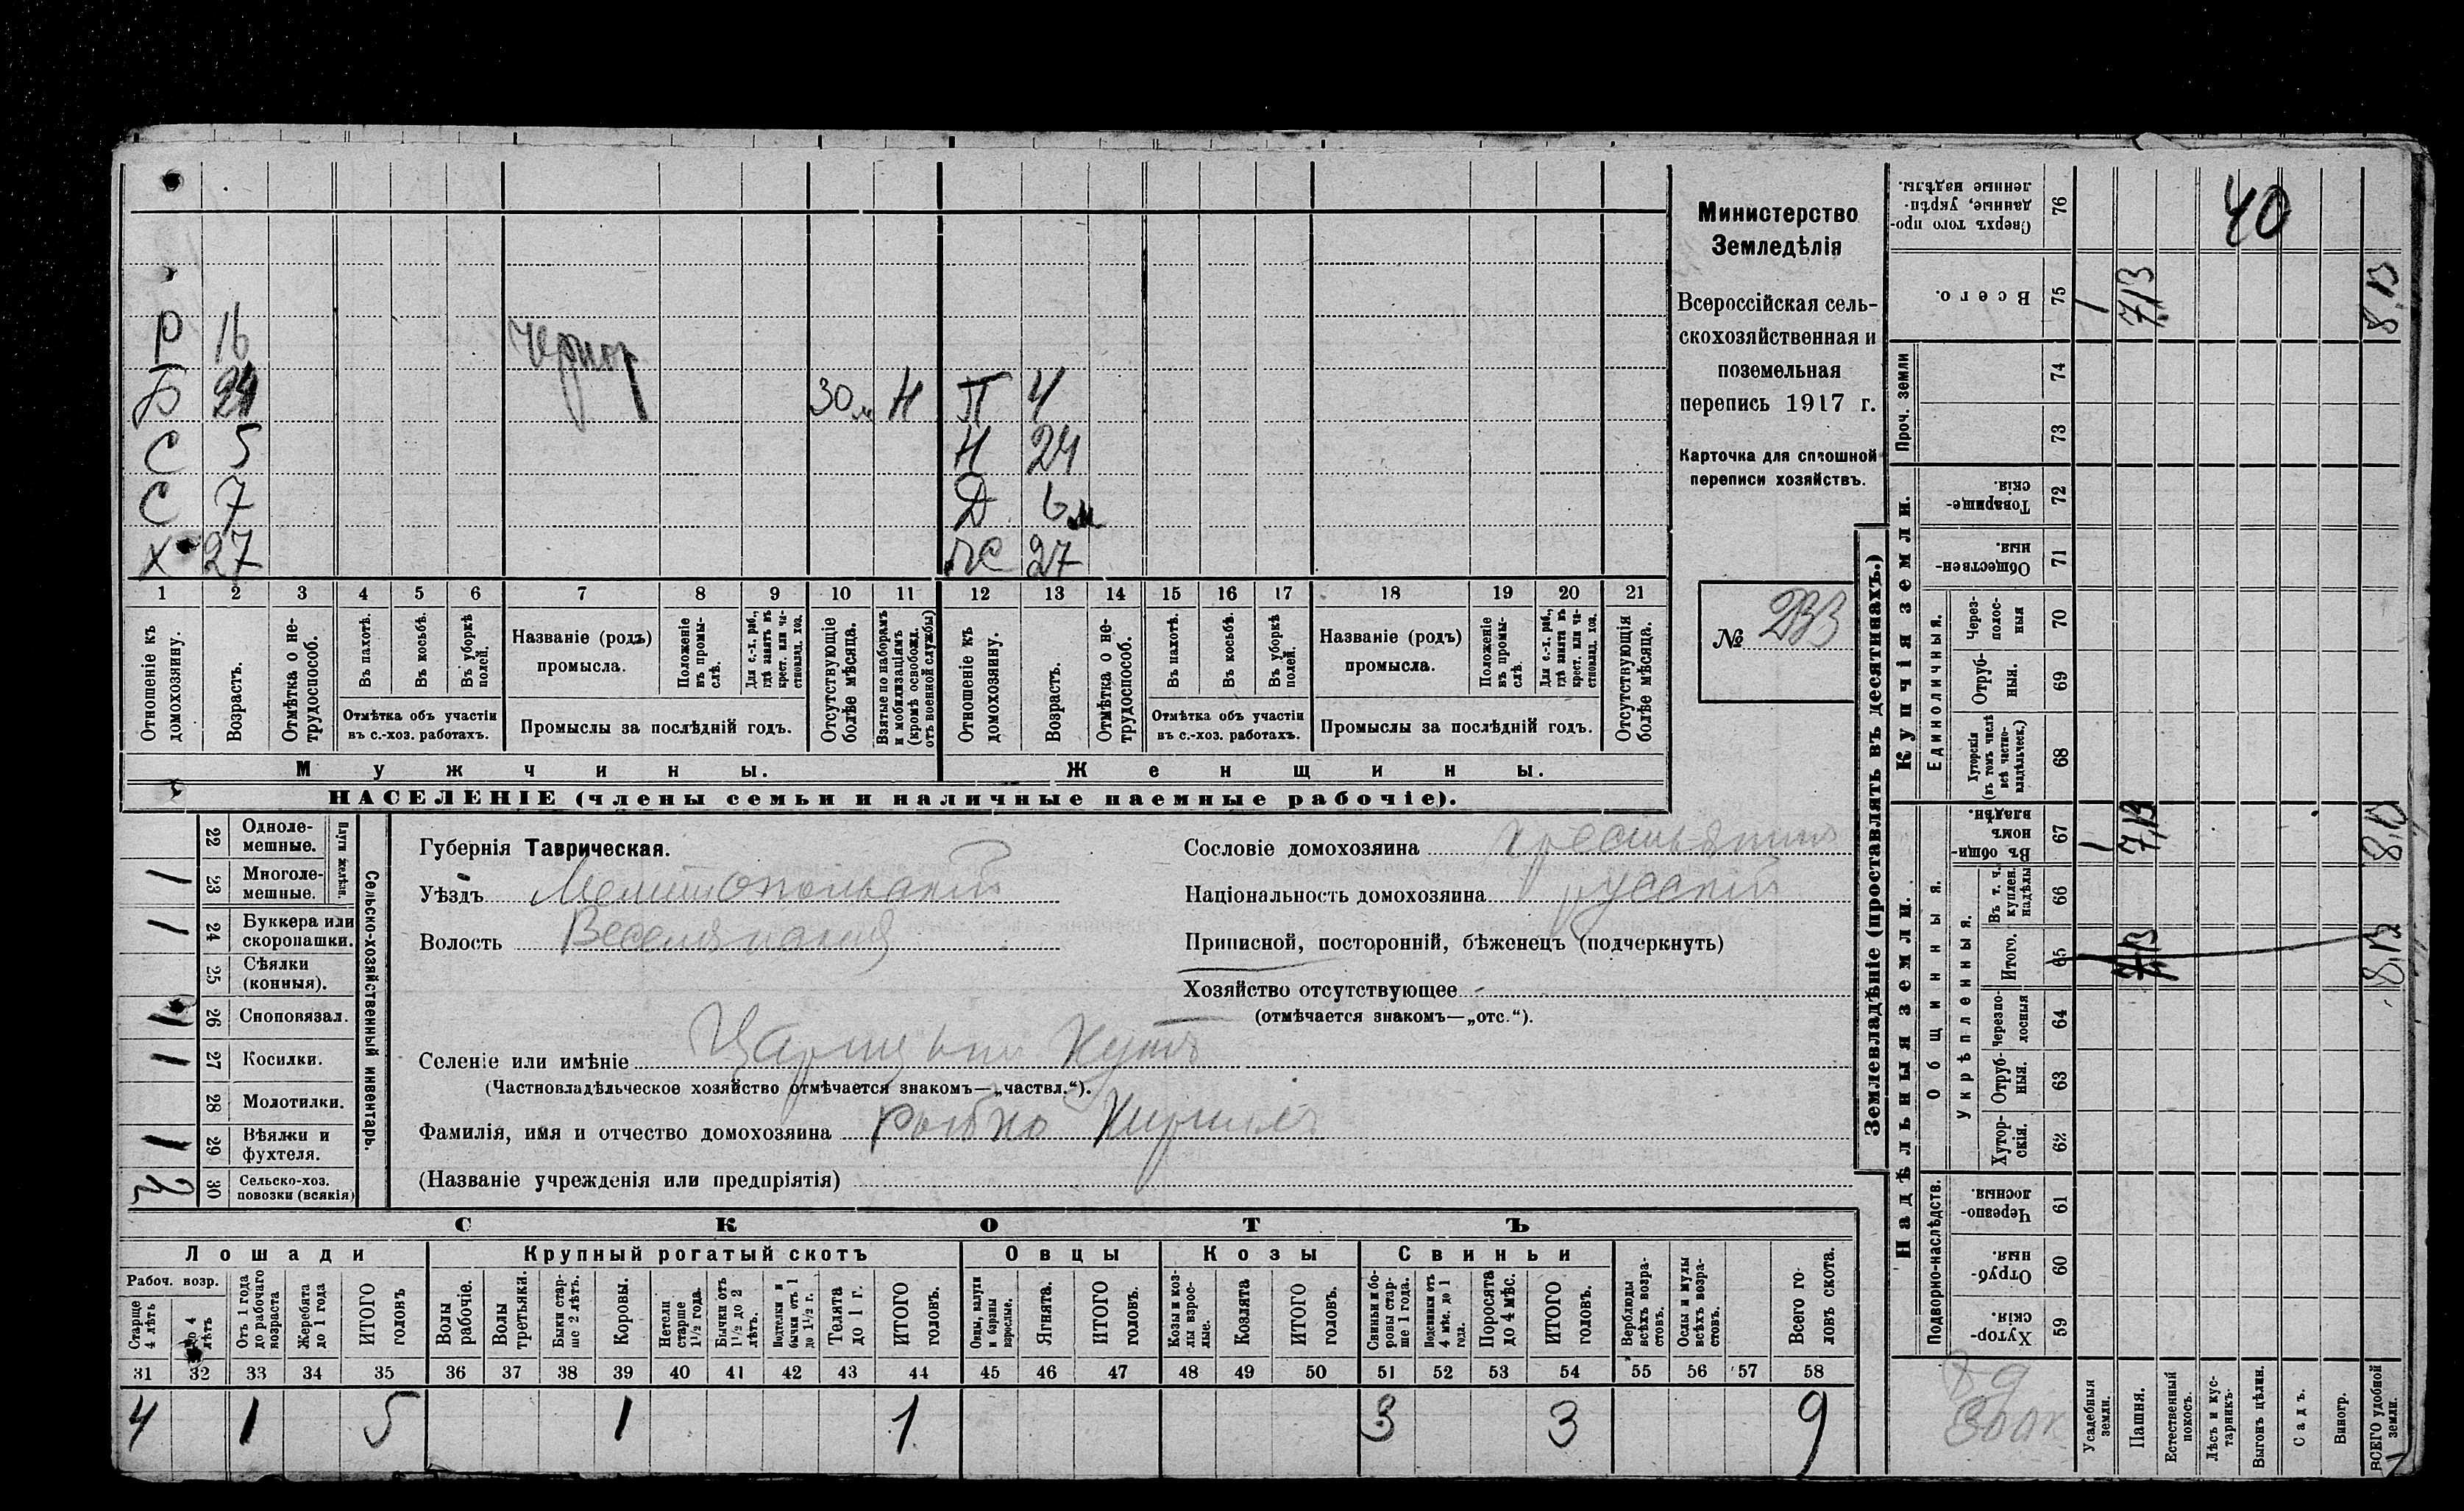 Министерство
Земледѣлія
Всероссійская сель-
скохозяйственная и
поземельная
перепись 1917 г.
Карточка для сплошной
переписи хозяйствъ.
№ 233
Р 16
Б 24 30 м Н П 4
С 5 Н 24
С 7 Д 6 м
Х 27 ПС 27
1 2 3 4 5 6 7 8 9 10 11 12 13 14 15 16 17 18 19 20 21
Отношеніе къ домохозяину.
Возрастъ.
Отмѣтка о не-трудоспособ.
Въ пахотѣ.
Въ косьбѣ.
Въ уборкѣ полей.
Отмѣтка объ участіи
въ с.-хоз. работахъ.
Названіе (родъ)
промысла.
Положеніе въ промы-слѣ.
Для с.-х. раб., гдѣ занятъ въ крест. или ча-стновлад. хоз.
Промыслы за послѣдній годъ.
Отсутствующіе болѣе мѣсяца.
Взятые по наборамъ и мобилизаціямъ (кромѣ освобожд. отъ военной службы)
Отношеніе къ домохозяину.
Возрастъ.
Отмѣтка о не-трудоспособ.
Въ пахотѣ.
Въ косьбѣ.
Въ уборкѣ полей.
Отмѣтка объ участіи
въ с.-хоз. работахъ.
Названіе (родъ)
промысла.
Положеніе въ промы-слѣ.
Для с.-х. раб., гдѣ занята въ крест. или ча-стновлад. хоз.
Промыслы за послѣдній годъ.
Отсутствующія болѣе мѣсяца.
Мужчины. Женщины.
НАСЕЛЕНІЕ (члены семьи и наличные наемные рабочіе).
Сельско-хозяйственный инвентарь.
Плуги желѣзн.
22 Одноле-мешные.
1 23 Многоле-мешные.
1 24 Буккера или скоропашки.
25 Сѣялки (конныя).
1 26 Сноповязал.
1 27 Косилки.
28 Молотилки.
1 29 Вѣялки и фухтеля.
2 30 Сельско-хоз. повозки (всякія)
Губернія Таврическая.
Уѣздъ Мелитопольскій
Волость Веселянская
Сословіе домохозяина крестьянинъ
Національность домохозяина русскій
Приписной, посторонній, бѣженецъ (подчеркнуть)
Хозяйство отсутствующее -
(отмѣчается знакомъ—„отс.“).
Селеніе или имѣніе Царицынъ Кутъ
(Частновладѣльческое хозяйство отмѣчается знакомъ—„частвл.“).
Фамилія, имя и отчество домохозяина Кирилъ
(Названіе учрежденія или предпріятія)
СКОТЪ
Лошади Крупный рогатый скотъ Овцы Козы Свиньи
Рабоч. возр.
Старше 4 лѣтъ
До 4 лѣтъ
Отъ 1 года до рабочаго возраста
Жеребята до 1 года
ИТОГО головъ
Волы рабочіе.
Волы третьяки.
Быки стар-ше 2 лѣтъ.
Коровы.
Нетели старше 1½ года.
Бычки отъ 1½ до 2 лѣтъ.
Подтелки и бычки отъ 1 до 1½ г.
Телята до 1 г.
ИТОГО головъ.
Овцы, валухи и бараны взрослые.
Ягнята.
ИТОГО головъ.
Козы и коз-лы взрос-лые.
Козлята
ИТОГО головъ.
Свиньи и бо-ровы стар-ше 1 года.
Подсвинки отъ 4 мѣс. до 1 года.
Поросята до 4 мѣс.
ИТОГО головъ.
Верблюды всѣхъ возра-стовъ.
Ослы и мулы всѣхъ возра-стовъ.
Всего го-ловъ скота.
31 32 33 34 35 36 37 38 39 40 41 42 43 44 45 46 47 48 49 50 51 52 53 54 55 56 57 58
4 1 5 1 1 3 3 9
Землевладѣніе (проставлять въ десятинахъ.)
Надѣльныя земли. Купчія земли. Проч. земли
Подворно-наслѣдств.
Общинныя.
Укрѣпленныя.
Единоличныя.
Сверхъ того про-данные, укрѣп-ленные надѣлы. 76 40
Всего. 75 1 7,13 8,13
74
73
Товарище-скія. 72
Обществен-ныя. 71
Через-полос-ныя 70
Отруб-ныя. 69
Хуторскія (въ томъ числѣ всѣ частно-владѣльческ.) 68
Въ общин-номъ владѣн. 67 1 7,13 8,13
Въ т. ч. куплен. надѣлы 66
Итого. 65 7,13 8,13
Черезпо-лосныя 64
Отруб-ныя. 63
Хутор-скія. 62
Черезпо-лосныя. 61
Отруб-ныя. 60
Хутор-скія. 59
Усадебныя земли.
Пашня.
Естественный покосъ.
Лѣсъ и кус-тарникъ.
Выгонъ цѣлин.
Садъ.
Виногр.
ВСЕГО удобной земли.